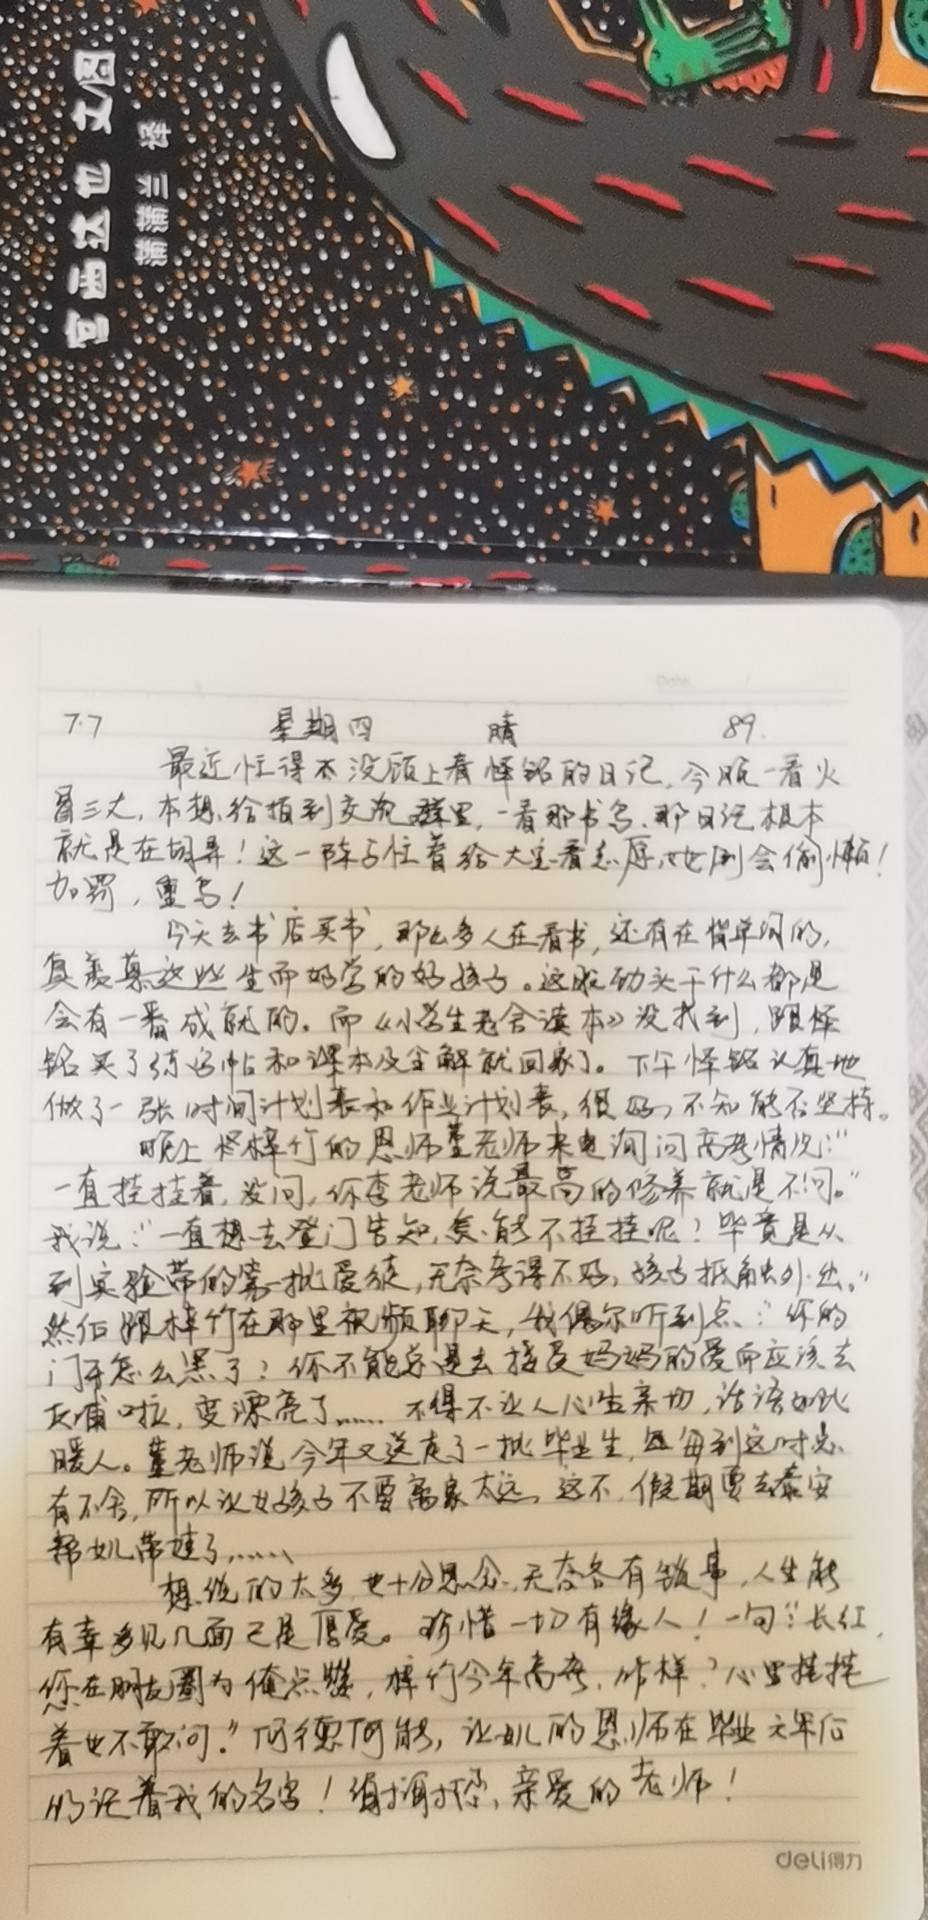 宫西达也 文图
蒲蒲兰 译
Date
7.7 星期四 晴 89.
最近忙得不没顾上看怿铭的日记,今晚一看火
冒三丈,本想给拍到交流群里,一看那书写、那日记根本
就是在胡弄!这一阵子忙着给大宝看志愿,她倒会偷懒!
加罚,重写!
今天去书店买书,那么多人在看书,还有在背单词的,
真羡慕这些生而好学的好孩子。这股劲头干什么都是
会有一番成就的。而《小学生 读本》没找到,跟怿
铭买了练字帖和课本及全解就回家了。下午怿铭认真地
做了一张时间计划表和作业计划表,很好,不知能否坚持。
晚上 梓竹的恩师董老师来电询问高考情况:“
一直挂挂着,没问,你李老师说最高的修养就是不问。”
我说:“一直想去登门告知,怎能不挂挂呢?毕竟是从
到实验带的第一批爱徒,无奈考得不好,孩子抵触外出。”
然后跟梓竹在那里视频聊天,我偶尔听到点:“你的
门牙怎么黑了?你不能总是去接受妈妈的爱而应该去
反哺啦,变漂亮了…… 不得不让人心生亲切,话语如此
暖人。董老师说今年又送走了一批毕业生,每每到这时总
有不舍,所以让女孩子不要离家太远,这不,假期要去泰安
帮女儿带娃了……
想说的太多也十分思念,无奈各有琐事,人生能
有幸多见几面已是厚爱。珍惜一切有缘人!一句:“长红,
您在朋友圈为俺点赞,梓竹今年高考,咋样?心里挂挂
着也不敢问。”何德何能,让女儿的恩师在毕业六年后
仍记着我的名字!谢谢您,亲爱的老师!
deli得力